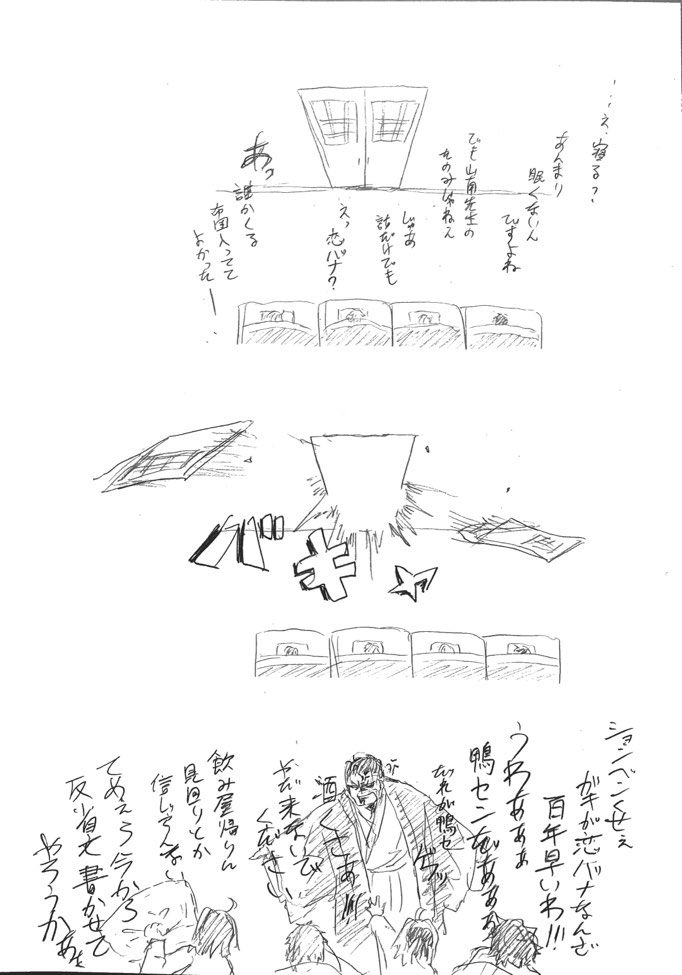 …え、寝る?
あんまり
眠くないん
ですよね
でも山南先生の
たのみじゃねえ
じゃあ
話だけでも
えっ恋バナ?
あっ
誰かくる
布団入ってて
よかったー
バキッ
ションベンくせぇ
ガキが恋バナなんざ
百年早いわ!!!
うわあああ
鴨センだあああ
だれが鴨セ
ンだッ
酒くさぁ!!!
やだ来ないで
ください
飲み屋帰りに
見回りとか
信じらんない
てめぇら今から
反省文書かせて
やろうかぁ